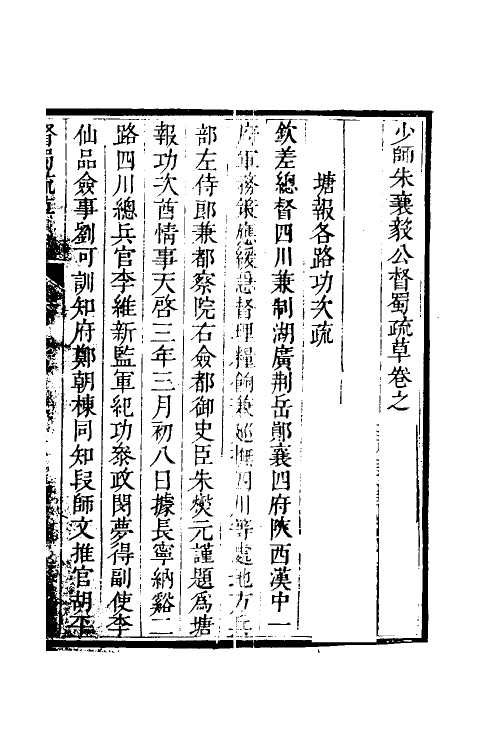 少師朱襄毅公督蜀疏草卷之
塘報各路功次疏
欽差總督四川兼制湖廣荆岳鄖襄四府陝西漢中一
府軍務策應緩急督理糧餉兼巡撫四川等處地方兵
部左侍郎兼都察院右僉都御史臣朱燮元謹題爲塘
報功次酋情事天啓三年三月初八日據長寧納谿二
路四川總兵官李維新監軍紀功叅政閔夢得副使李
仙品僉事劉可訓知府鄭朝棟同知段師文推官胡平
督蜀疏草